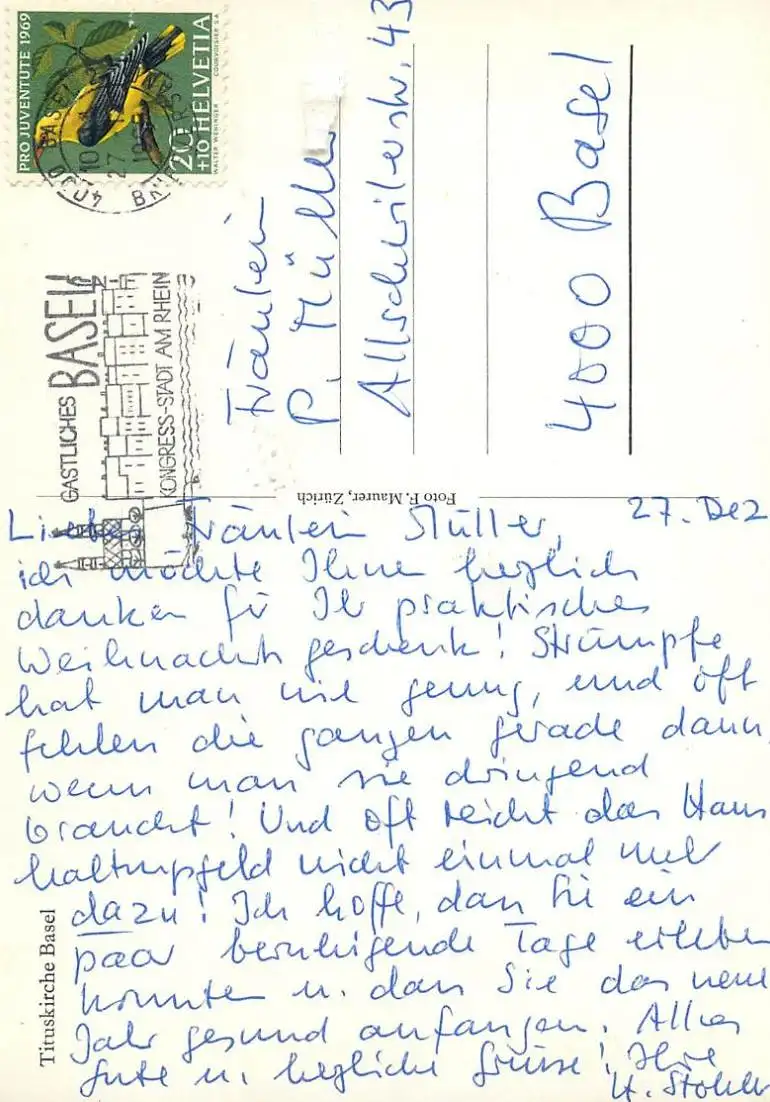 PRO JUVENTUTE 1969
20 +10 HELVETIA
COURVOISIER S.A.
WALTER WEHINGER
4000 BASEL
BRIEFVERSAND
27
GASTLICHES
BASEL
KONGRESS-STADT AM RHEIN
Fräulein
P. Müller
Allschwilerstr. 43
4000 Basel
Foto F. Maurer, Zürich
27. Dez
Liebes Fräulein Müller,
ich möchte Ihnen herzlich
danken für Ihr praktisches
Weihnachtsgeschenk! Strümpfe
hat man nie genug, und oft
fehlen die ganzen gerade dann,
wenn man sie dringend
braucht! Und oft reicht das Haus
haltungsgeld nicht einmal mehr
dazu! Ich hoffe, dass Sie ein
paar beruhigende Tage erleben
konnten u. dass Sie das neue
Jahr gesund anfangen. Alles
Gute u. herzliche Grüsse! Ihre
H. Stohler
Tituskirche Basel